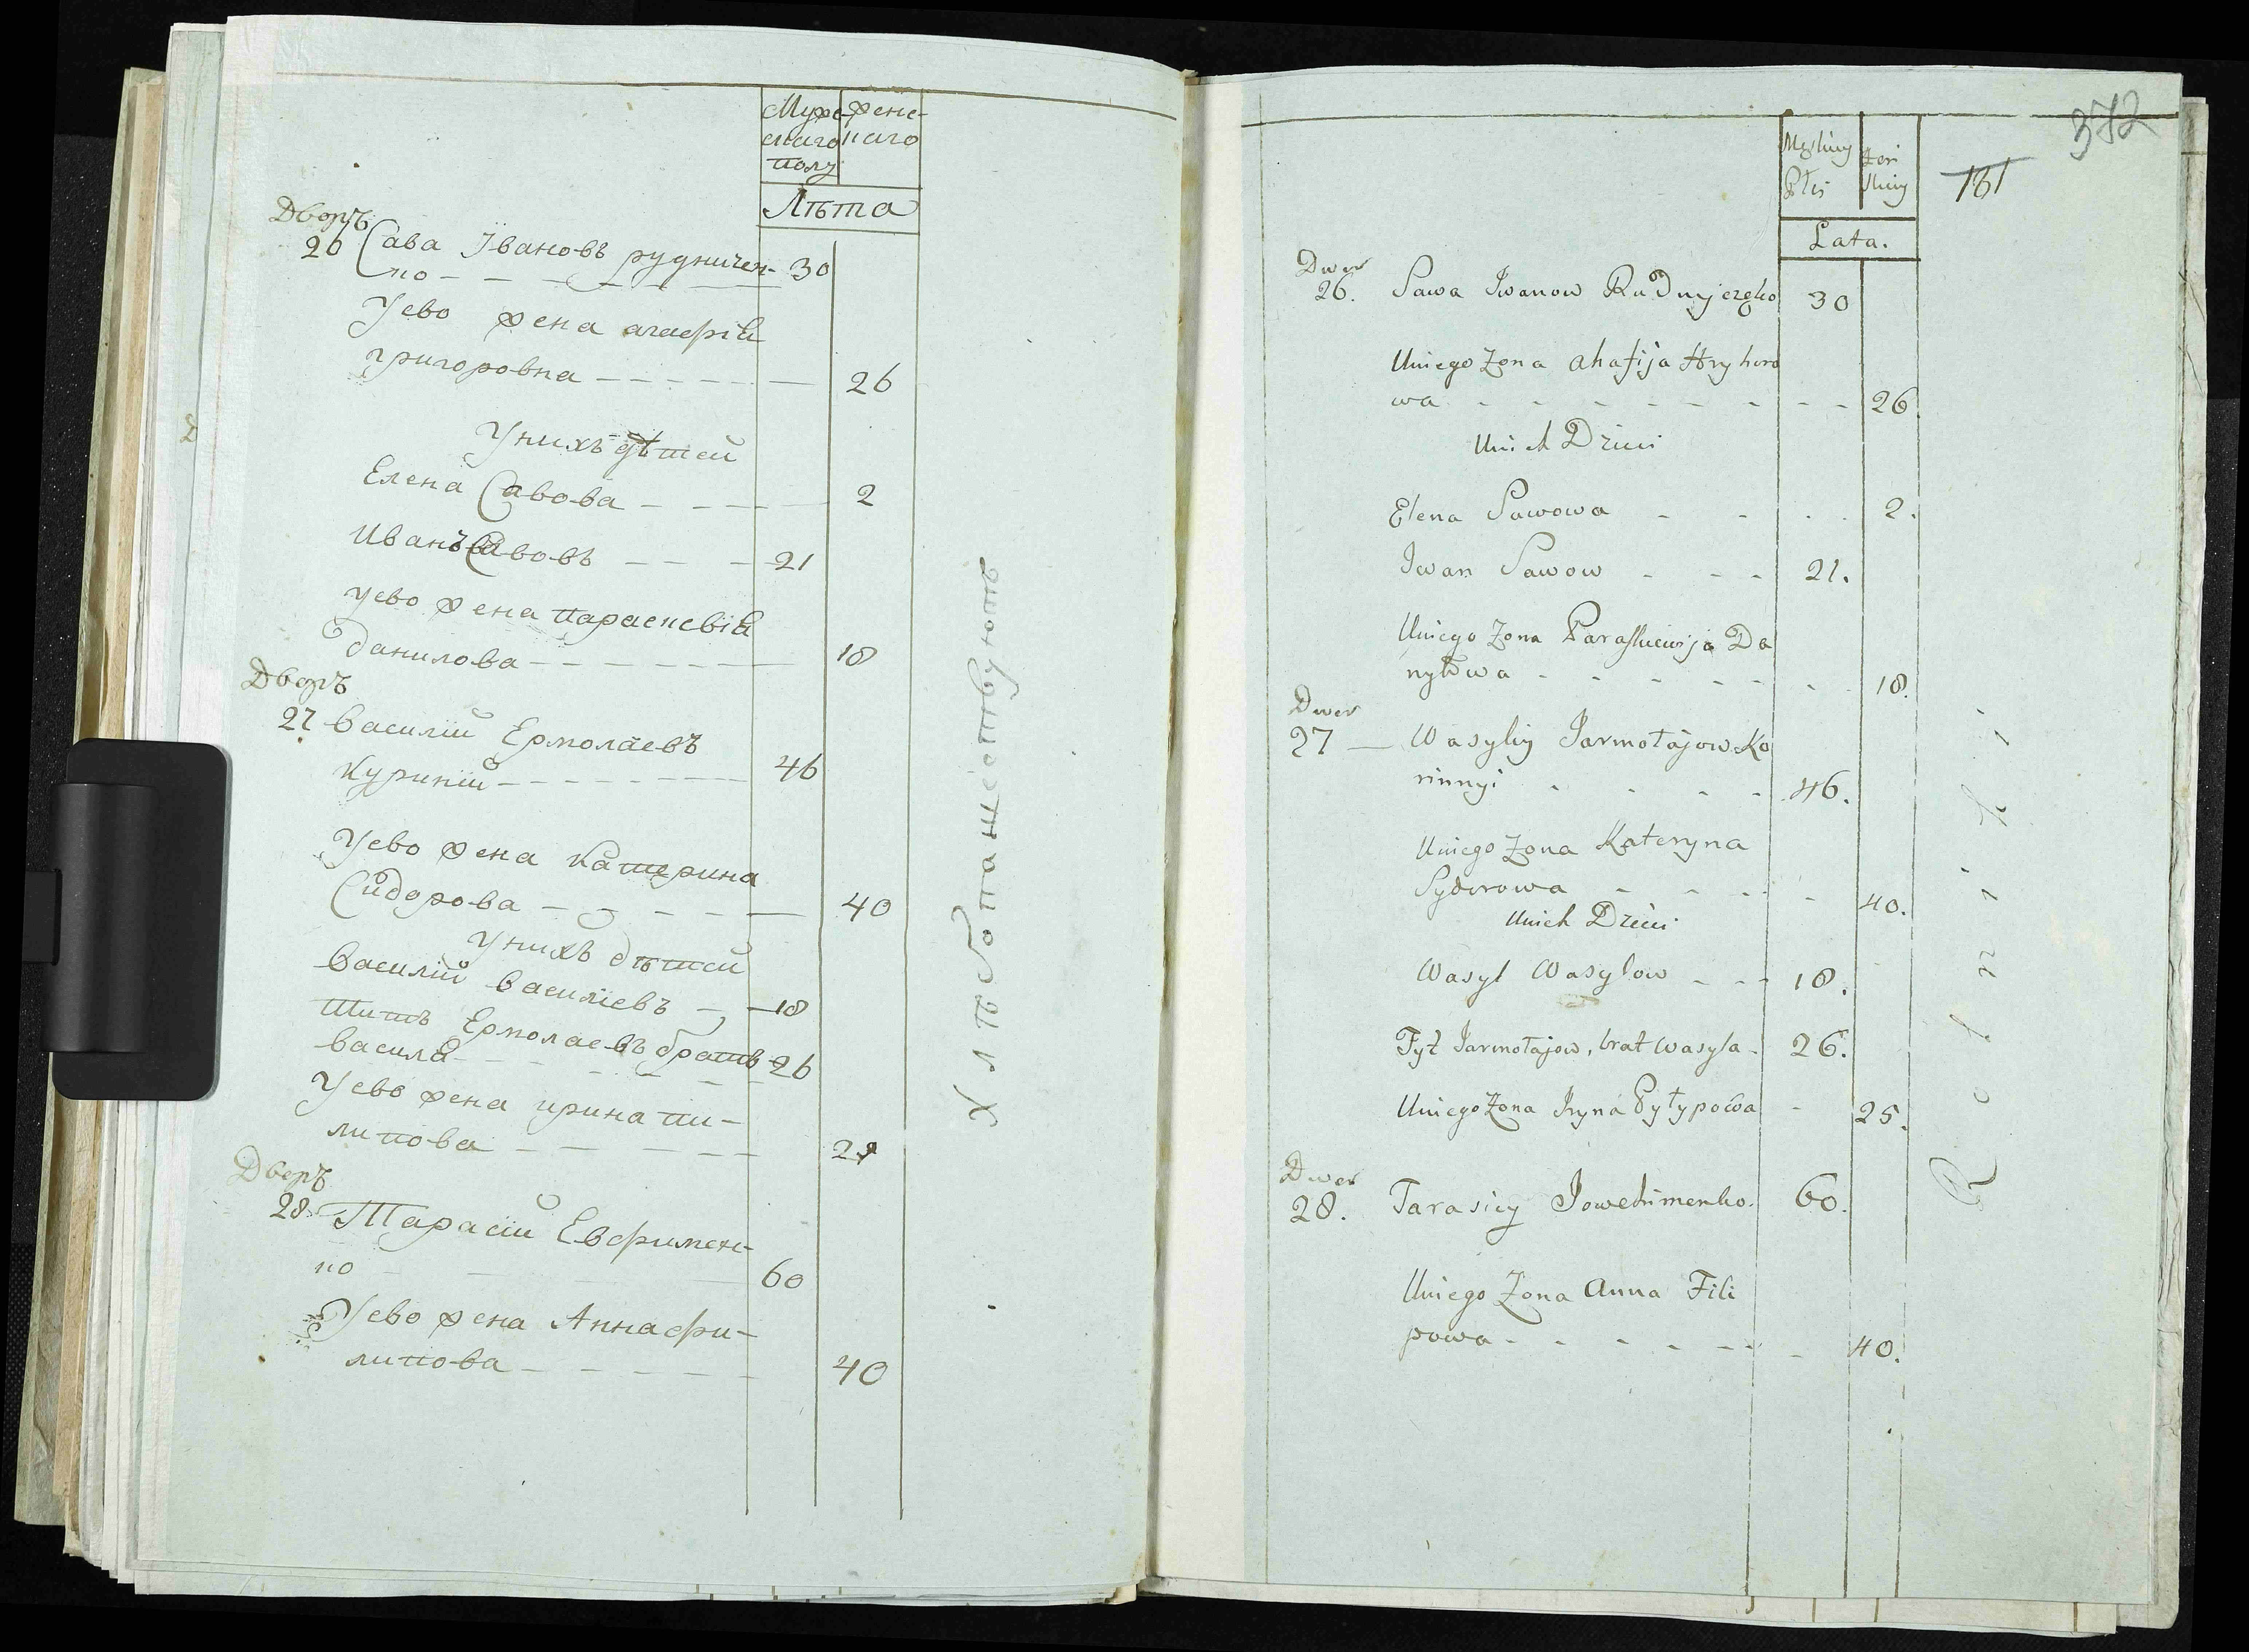 Мужескаго полу
женскаго
Лѣта
Дворъ
26 Сава Iвановъ рудничен-
ко 30
Уево жена агафiя
григоровна 26
Унихъ дѣтей
Елена Савова 2
Иванъ Савовъ 21
уево жена параскевiя
данилова 18
Дворъ
27 василiй Ермолаевъ
куриный 46
Уево жена катерина
Сидорова 40
Унихъ дѣтей
василiй василiевъ 18
титъ Ермолаевъ братъ
василя 26
Уево жена ирина пи-
липова 25
Дворъ
28 Тарасiй Евфимен-
ко 60
Уево жена Анна фи-
липова 40
Хлѣбопашествуютъ
372
181
Męzkiey Płci
Żeń skiey
Lata.
Dwor
26. Sawa Iwanow Rudnyczęko 30
Uniego Żona ahafija Hryhoro
wa 26.
Unich Dzieci
Elena Sawowa 2.
Iwan Sawow 21.
Uniego Żona Paraskiewija Da
nyłowa 18.
Dwor
27 Wasyliy Jarmołajow Ko
rinnyi 46.
Uniego Żona Kateryna
Sydorowa 40.
Unich Dzieci
Wasyl Wasylow 18.
Tyt Jarmołajow, brat Wasyla 26.
Uniego Żona Iryna Pyłypowa 25.
Dwor
28. Tarasiey Jowchimenko. 60.
Uniego Żona Anna Fili
powa 40.
Rolniki.